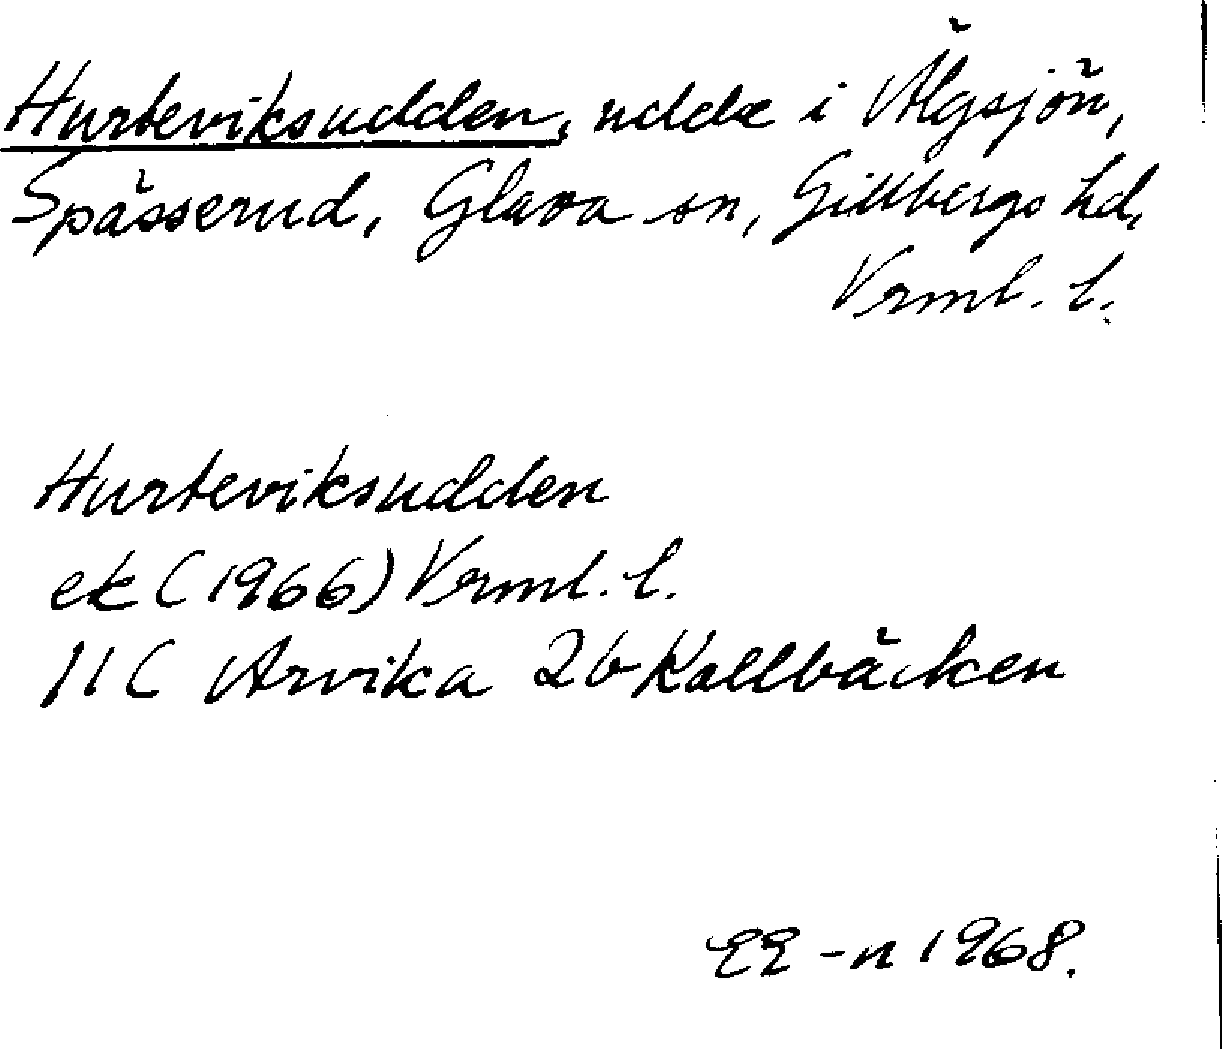 Hurteviksudden, udde i Älgsjön,
Spässerud, Glava sn, Gillbergs hd,
Vrml. l.
Hurteviksudden
ek (1966) Vrml. l.
11C Arvika 2b Kallbäcken
EE-n 1968.